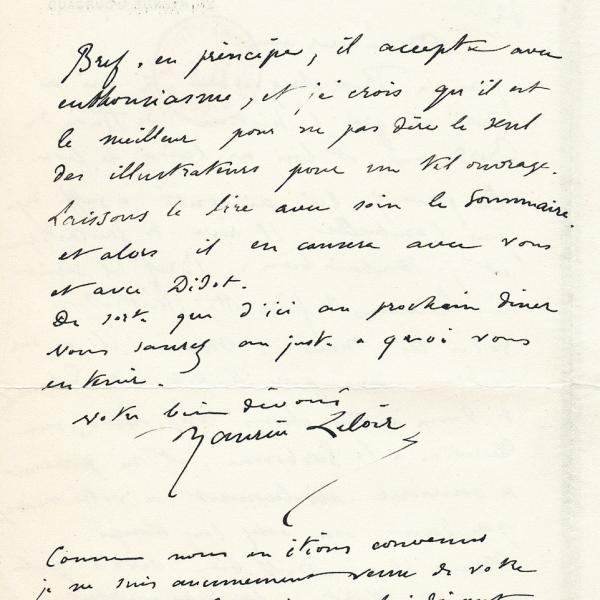 Bref, en principe, il accepte avec
enthousiasme, et je crois qu'il est
le meilleur pour ne pas dire le seul
des illustrateurs pour un tel ouvrage.
Laissons le lire avec soin le Sommaire.
et alors il en causera avec vous
et avec Didot.
De sorte que d'ici au prochain diner
vous saurez au juste a quoi vous
en tenir.
Votre bien dévoué
Maurice Leloir
Comme nous en étions convenus
je ne suis aucunement venue de votre